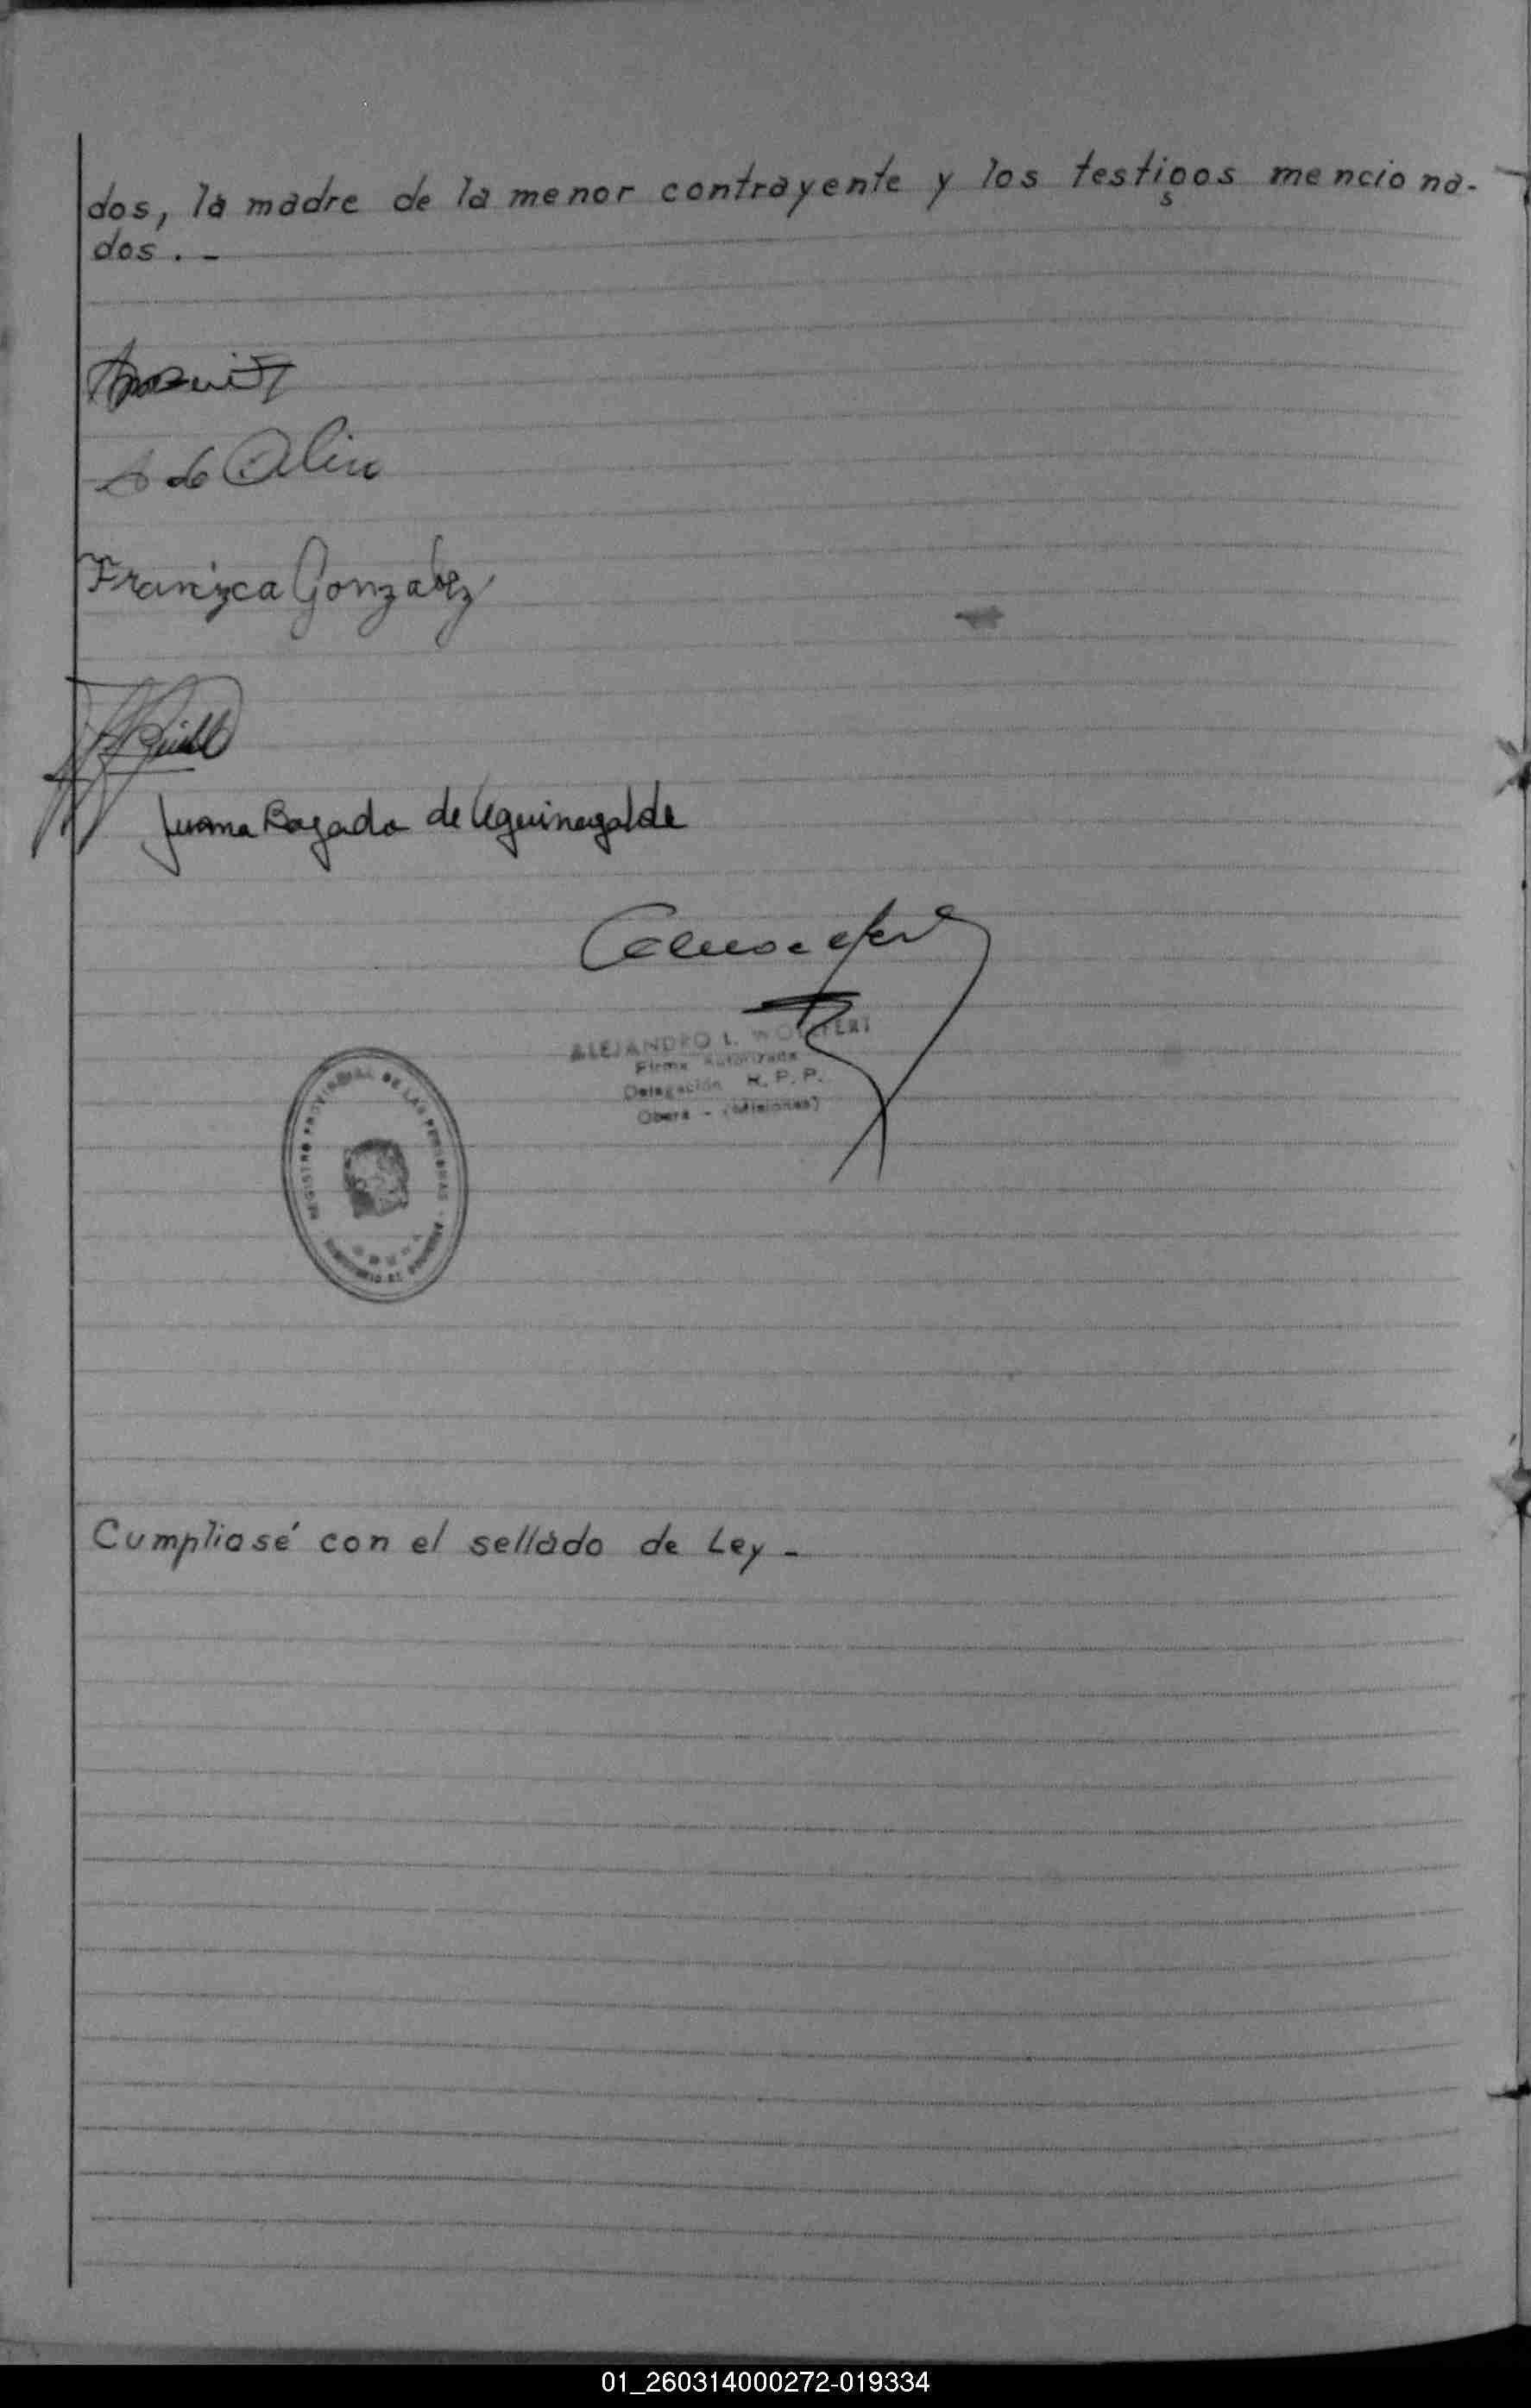 dos, la madre de la menor contrayente y los testigos menciona-
dos. -
A de Oliv
Francizca Gonzalez
Juana Bogado de Eguinagalde
ALEJANDRO L. WOLFFERT
Firma Autorizada
Delegación R. P. P.
Oberá - (Misiones)
REGISTRO PROVINCIAL DE LAS PERSONAS
Cumpliasé con el sellado de Ley -
01_260314000272-019334